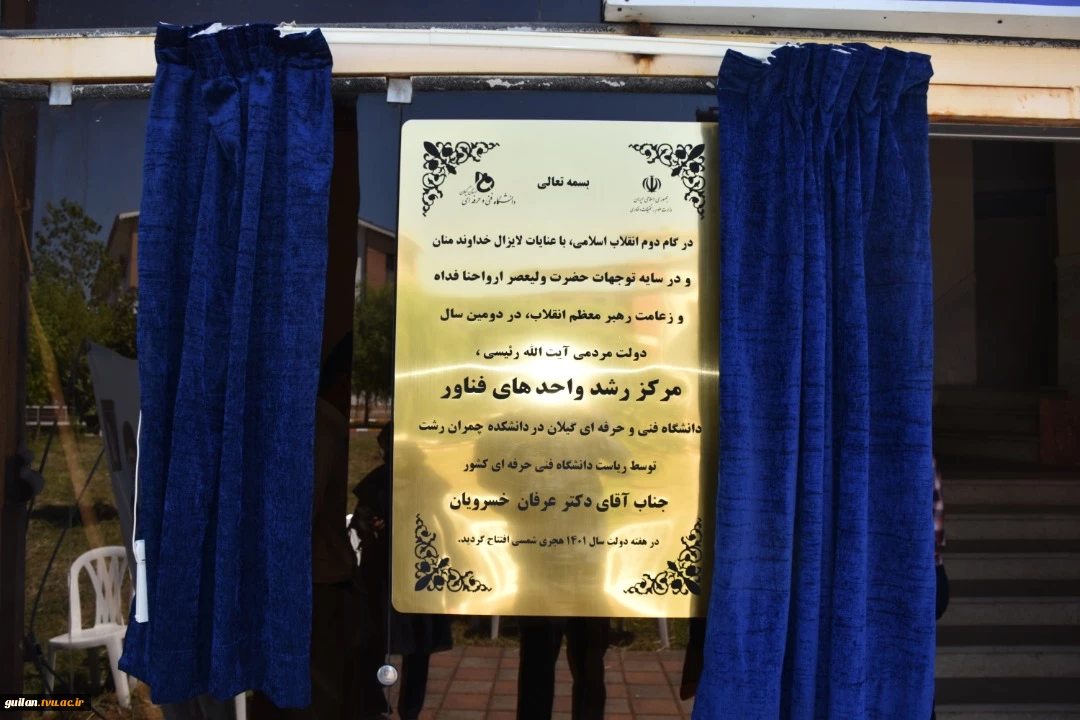 بسمه تعالی
جمهوری اسلامی ایران
وزارت علوم، تحقیقات و فناوری
دانشگاه فنی و حرفه ای
استان گیلان
در گام دوم انقلاب اسلامی، با عنایات لایزال خداوند منان
و در سایه توجهات حضرت ولیعصر ارواحنا فداه
و زعامت رهبر معظم انقلاب، در دومین سال
دولت مردمی آیت الله رئیسی ،
مرکز رشد واحد های فناور
دانشگاه فنی و حرفه ای گیلان در دانشکده چمران رشت
توسط ریاست دانشگاه فنی حرفه ای کشور
جناب آقای دکتر عرفان خسرویان
در هفته دولت سال ۱۴۰۱ هجری شمسی افتتاح گردید.
guilan.tvu.ac.ir